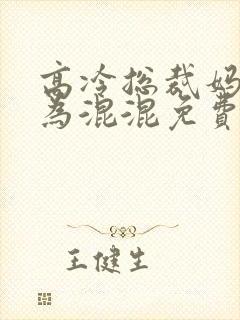 高冷总裁妈
为混混免费
王健生